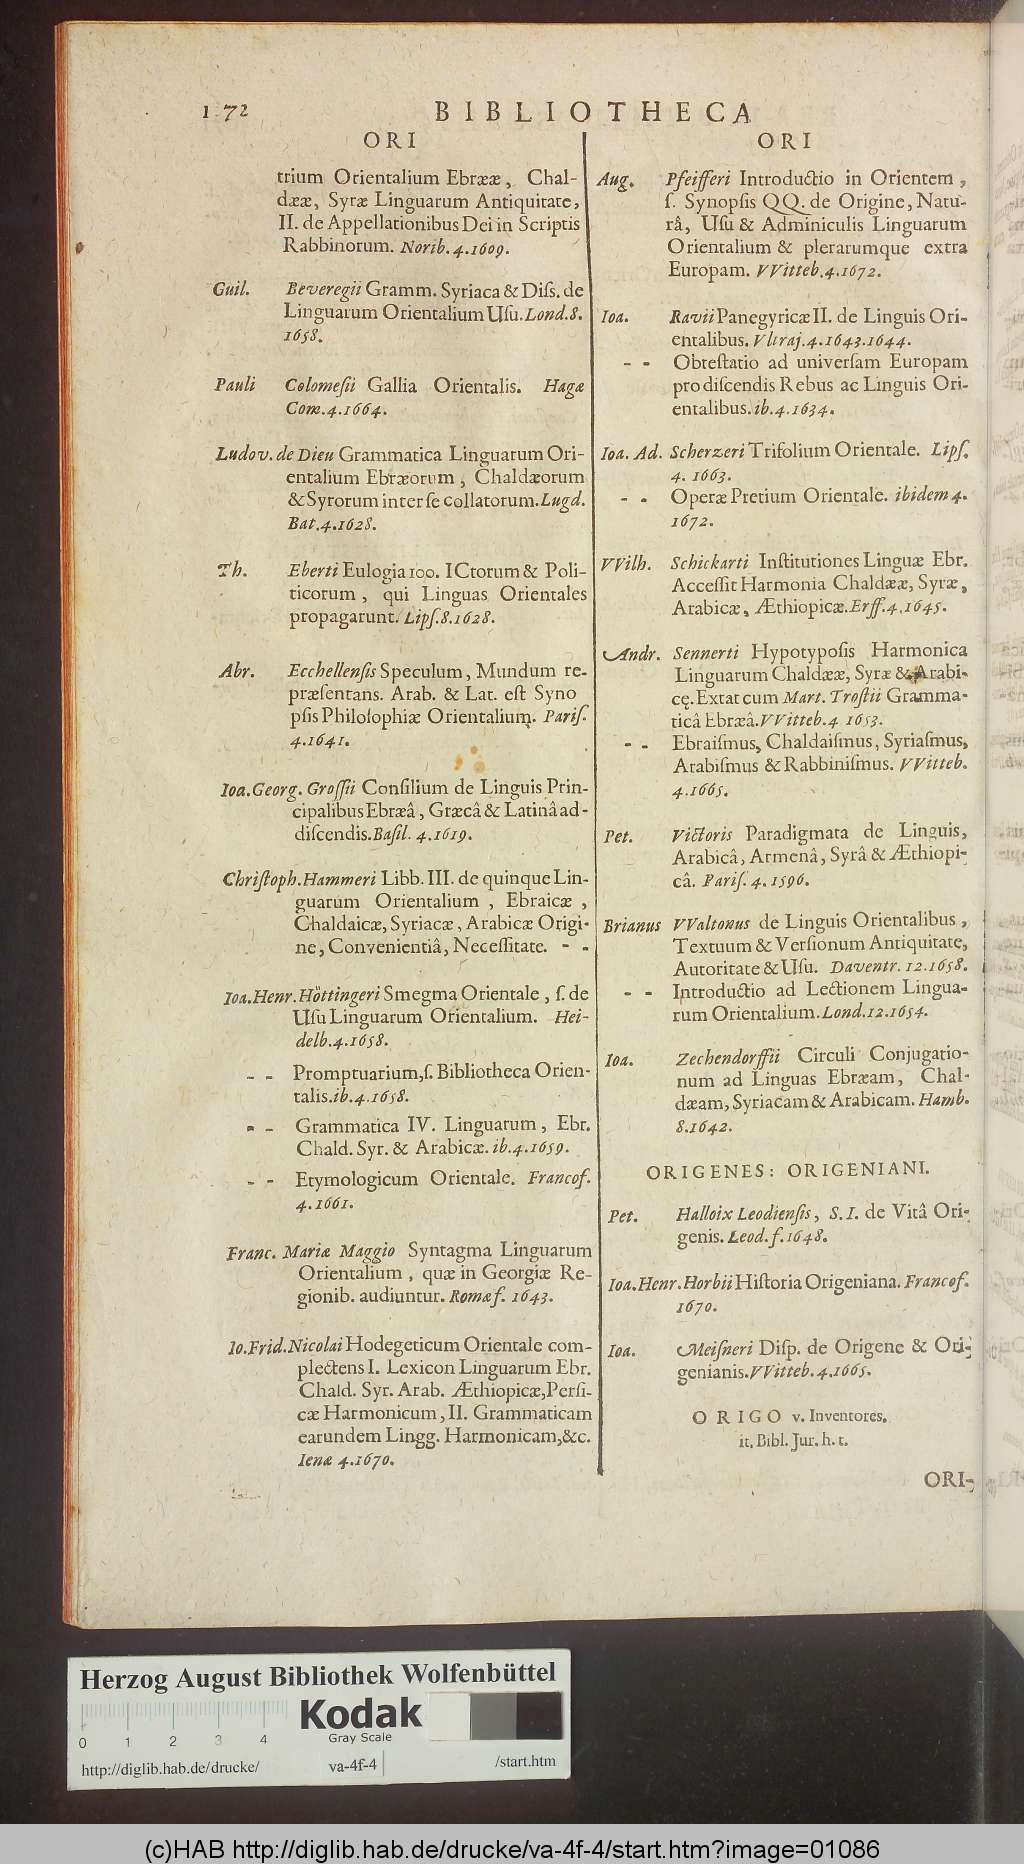 172
BIBLIOTHECA
ORI
trium Orientalium Ebrææ, Chal-
dææ, Syræ Linguarum Antiquitate,
II. de Appellationibus Dei in Scriptis
Rabbinorum. Norib. 4. 1609.
Guil. Beveregii Gramm. Syriaca & Diſs. de
Linguarum Orientalium Uſu. Lond. 8.
1658.
Pauli Colomeſii Gallia Orientalis. Hagæ
Com. 4. 1664.
Ludov. de Dieu Grammatica Linguarum Ori-
entalium Ebræorum, Chaldæorum
& Syrorum inter ſe collatorum. Lugd.
Bat. 4. 1628.
Th. Eberti Eulogia 100. ICtorum & Poli-
ticorum, qui Linguas Orientales
propagarunt. Lipſ. 8. 1628.
Abr. Ecchellenſis Speculum, Mundum re-
præſentans. Arab. & Lat. eſt Syno
pſis Philoſophiæ Orientalium. Pariſ.
4. 1641.
Ioa. Georg. Groſſii Conſilium de Linguis Prin-
cipalibus Ebræâ, Græcâ & Latinâ ad-
diſcendis. Baſil. 4. 1619.
Chriſtoph. Hammeri Libb. III. de quinque Lin-
guarum Orientalium, Ebraicæ,
Chaldaicæ, Syriacæ, Arabicæ Origi-
ne, Convenientiâ, Neceſſitate. - -
Ioa. Henr. Höttingeri Smegma Orientale, ſ. de
Uſu Linguarum Orientalium. Hei-
delb. 4. 1658.
- - Promptuarium, ſ. Bibliotheca Orien-
talis. ib. 4. 1658.
- - Grammatica IV. Linguarum, Ebr.
Chald. Syr. & Arabicæ. ib. 4. 1659.
- - Etymologicum Orientale. Francof.
4. 1661.
Franc. Mariæ Maggio Syntagma Linguarum
Orientalium, quæ in Georgiæ Re-
gionib. audiuntur. Romæ f. 1643.
Io. Frid. Nicolai Hodegeticum Orientale com-
plectens I. Lexicon Linguarum Ebr.
Chald. Syr. Arab. Æthiopicæ, Perſi-
cæ Harmonicum, II. Grammaticam
earundem Lingg. Harmonicam, &c.
Ienæ 4. 1670.
ORI
Aug. Pfeifferi Introductio in Orientem,
ſ. Synopſis QQ. de Origine, Natu-
râ, Uſu & Adminiculis Linguarum
Orientalium & plerarumque extra
Europam. VVitteb. 4. 1672.
Ioa. Ravii Panegyricæ II. de Linguis Ori-
entalibus. Vltraj. 4. 1643. 1644.
- - Obteſtatio ad univerſam Europam
pro diſcendis Rebus ac Linguis Ori-
entalibus. ib. 4. 1634.
Ioa. Ad. Scherzeri Trifolium Orientale. Lipſ.
4. 1663.
- - Operæ Pretium Orientale. ibidem 4.
1672.
VVilh. Schickarti Inſtitutiones Linguæ Ebr.
Acceſſit Harmonia Chaldææ, Syræ,
Arabicæ, Æthiopicæ. Erff. 4. 1645.
Andr. Sennerti Hypotypoſis Harmonica
Linguarum Chaldææ, Syræ & Arabi-
cę. Extat cum Mart. Troſtii Gramma-
ticâ Ebræâ. VVitteb. 4 1653.
- - Ebraiſmus, Chaldaiſmus, Syriaſmus,
Arabiſmus & Rabbiniſmus. VVitteb.
4. 1665.
Pet. Victoris Paradigmata de Linguis,
Arabicâ, Armenâ, Syrâ & Æthiopi-
câ. Pariſ. 4. 1596.
Brianus VValtonus de Linguis Orientalibus,
Textuum & Verſionum Antiquitate,
Autoritate & Uſu. Daventr. 12. 1658.
- - Introductio ad Lectionem Lingua-
rum Orientalium. Lond. 12. 1654.
Ioa. Zechendorffii Circuli Conjugatio-
num ad Linguas Ebræam, Chal-
dæam, Syriacam & Arabicam. Hamb.
8. 1642.
ORIGENES: ORIGENIANI.
Pet. Halloix Leodienſis, S. I. de Vitâ Ori-
genis. Leod. f. 1648.
Ioa. Henr. Horbii Hiſtoria Origeniana. Francof.
1670.
Ioa. Meiſneri Diſp. de Origene & Ori-
genianis. VVitteb. 4. 1665.
ORIGO v. Inventores.
it. Bibl. Jur. h. t.
ORI-
Herzog August Bibliothek Wolfenbüttel
Kodak
Gray Scale
0 1 2 3 4
http://diglib.hab.de/drucke/ va-4f-4 /start.htm
(c)HAB http://diglib.hab.de/drucke/va-4f-4/start.htm?image=01086